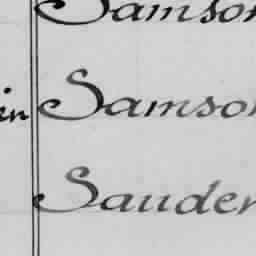 Samson
in Samson
Sauder